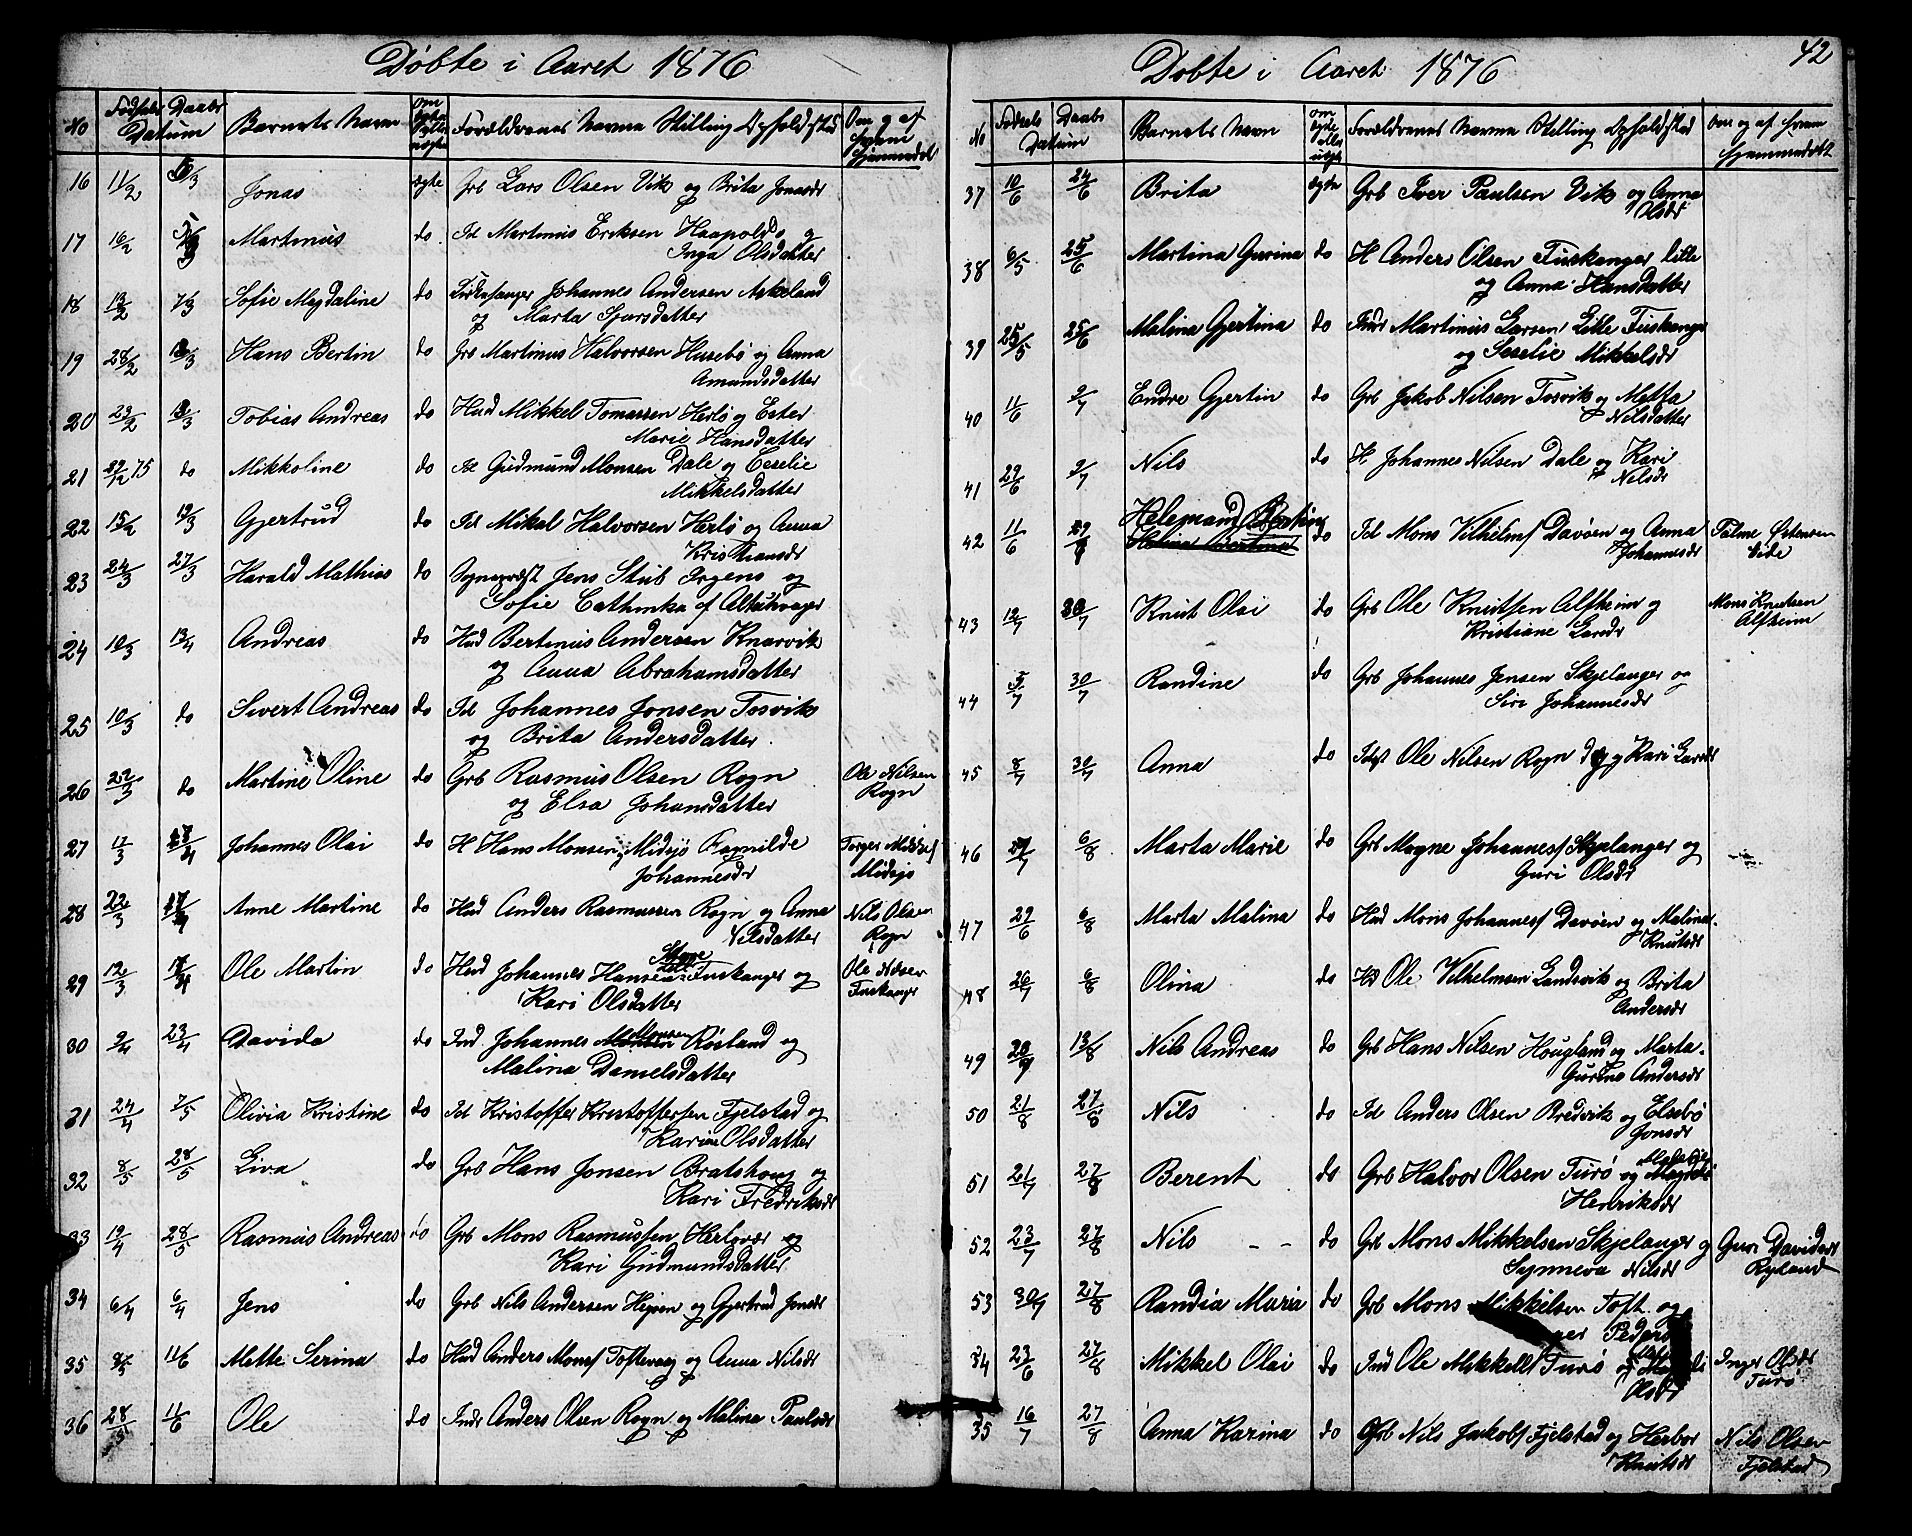 Døbte i Aaret 1876
No Fødsels Daabs Barnets Navn om Forældrenes Navne Stilling Opholdsted Om og af
Datum ægte eller uægte hvem hjemmedøbt
16 11/2 5/3 Jonas ægte Grb Lars Olsen Vik og Brita Jonasdr
17 16/2 Martinus do Id Martinus Eriksen Haapoldø og
Inga Olsdatter
18 13/2 7/3 Sofie Magdaline do Kirkesanger Johannes Andersen Askeland
og Marta Sjursdatter
19 28/2 /3 Hans Bertin do Grb Martinus Halvorsen Husebø og Anna
Amundsdatter
20 23/2 /3 Tobias Andreas do Husd Mikkel Tomassen Herlø og Ester
Marie Hansdatter
21 22/12 75 do Mikkoline do Id Gudmund Monsen Dale og Ceselie
Mikkelsdatter
22 15/2 19/3 Gjertrud do Id Mikal Halvorsen Herlø og Anna
Kristiansdr
23 24/3 27/3 Harald Mathias do Sognepræst Jens Stub Irgens og
Sofie Cathinka f Altschwager
24 10/3 17/4 Andreas do Husd Bertinus Andersen Knarvik
og Anna Abrahamsdatter
25 10/3 do Sivert Andreas do Id Johannes Jonsen Tosvik
og Brita Andersdatter
26 22/3 do Martine Oline do Grb Rasmus Olsen Rogn Ole Nilsen
og Elsa Johansdatter Rogn
27 17/3 /4 Johannes Olai do H Hans Monsen Midsjø Fagnilde Torger Mikkels
Johannesdr Midsjø
28 22/3 17/4 Anne Martine do Husd Anders Rasmussen Rogn og Anna Nils Olsen
Nilsdatter Rogn
29 12/3 17/4 Ole Martin do Husd Johannes Hansen Store Tuskanger og Ole Nilsen
Kari Olsdatter Tuskanger
30 9/4 23/4 Davida do Ind Johannes Monsen Røsland og
Malina Danielsdatter
31 24/4 7/5 Olivia Kristine do Id Kristoffer Kristoffersen Fjelstad og
Karine Olsdatter
32 8/5 28/5 Liva do Grb Hans Jonsen Bratshoug og
Kari Fredriksdr
33 19/4 28/5 Rasmus Andreas do Grb Mons Rasmussen Herlevær og
Kari Gudmundsdatter
34 6/4 6/4 Jens do Grb Nils Andersen Hejøen og Gjertrud Jonsdr
35 11/6 Mette Serina do Husd Anders Mons Toftevaag og Anna Nilsdr
36 28/5 11/6 Ole do Inds Anders Olsen Rogn og Malina Paulsdr
42
Døbte i Aaret 1876
No Fødsels Daabs Barnets Navn om Forældrenes Navne Stilling Opholdsted Om og af hvem
Datum ægte eller uægte hjemmedøbt
37 10/6 24/6 Brita ægte Grb Iver Paulsen Vik og Anna
Olsdr
38 6/5 25/6 Martina Gurina do H Anders Olsen Tuskanger lille
og Anna Hansdatter
39 25/5 25/6 Malina Gjertina do Inds Martinus Larsen Litle Tuskange
og Seselie Mikkelsdr
40 11/6 2/7 Endre Gjertin do Grb Jakob Nilsen Tosvik og Metta
Nilsdatter
41 22/6 2/7 Nils do H Johannes Nilsen Dale og Kari
Nilsdr
Helemand Bertin
42 11/6 29/ Helina Bertina do Id Mons Vilhelms Davøen og Anna Tolme Østensen
Johannesdr Eide
43 12/7 30/7 Knut Olai do Grb Ole Knutsen Alfheim og Mons Knutsen
Kristiane Larsdr Alfheim
44 5/7 30/7 Randine do Grb Johannes Jensen Skjelanger og
Siri Johannesdr
45 8/7 30/7 Anna do Ole Nilsen Rogn og Kari Larsdr
46 /7 6/8 Marta Marie do Grb Magne Johannes Skjelanger og
Guri Olsdr
47 29/6 6/8 Marta Malina do Husd Mons Johannes Davøen og Malina
Knutsdr
48 26/7 6/8 Olina do Hd Ole Vilhelmsen Landsvik og Brita
Andersdr
49 13/8 Nils Andreas do Grb Hans Nilsen Hougland og Marta
Gurine Andersdr
50 21/8 27/8 Nils do Id Anders Olsen Bredvik og Elsebø
Jonsdr
51 21/7 27/8 Berent do Grb Halvor Olsen Turø og
Henriksdr
52 23/7 27/8 Nils - - do Grb Mons Mikkelsen Skjelanger og Guri Davidsdr
Synneva Nilsdr Ryland
53 30/7 27/8 Randia Maria do Grb Mons Mikkelsen Toft og
Peders
34 23/6 27/8 Mikkel Olai do Ind Ole Mikkels Turø og Inger Olsdr
Olsdr Turø
35 16/7 27/8 Anna Karina do Grb Nils Jakobs Fjelstad og Herbor Nils Olsen
Knutsdr Fjelstad